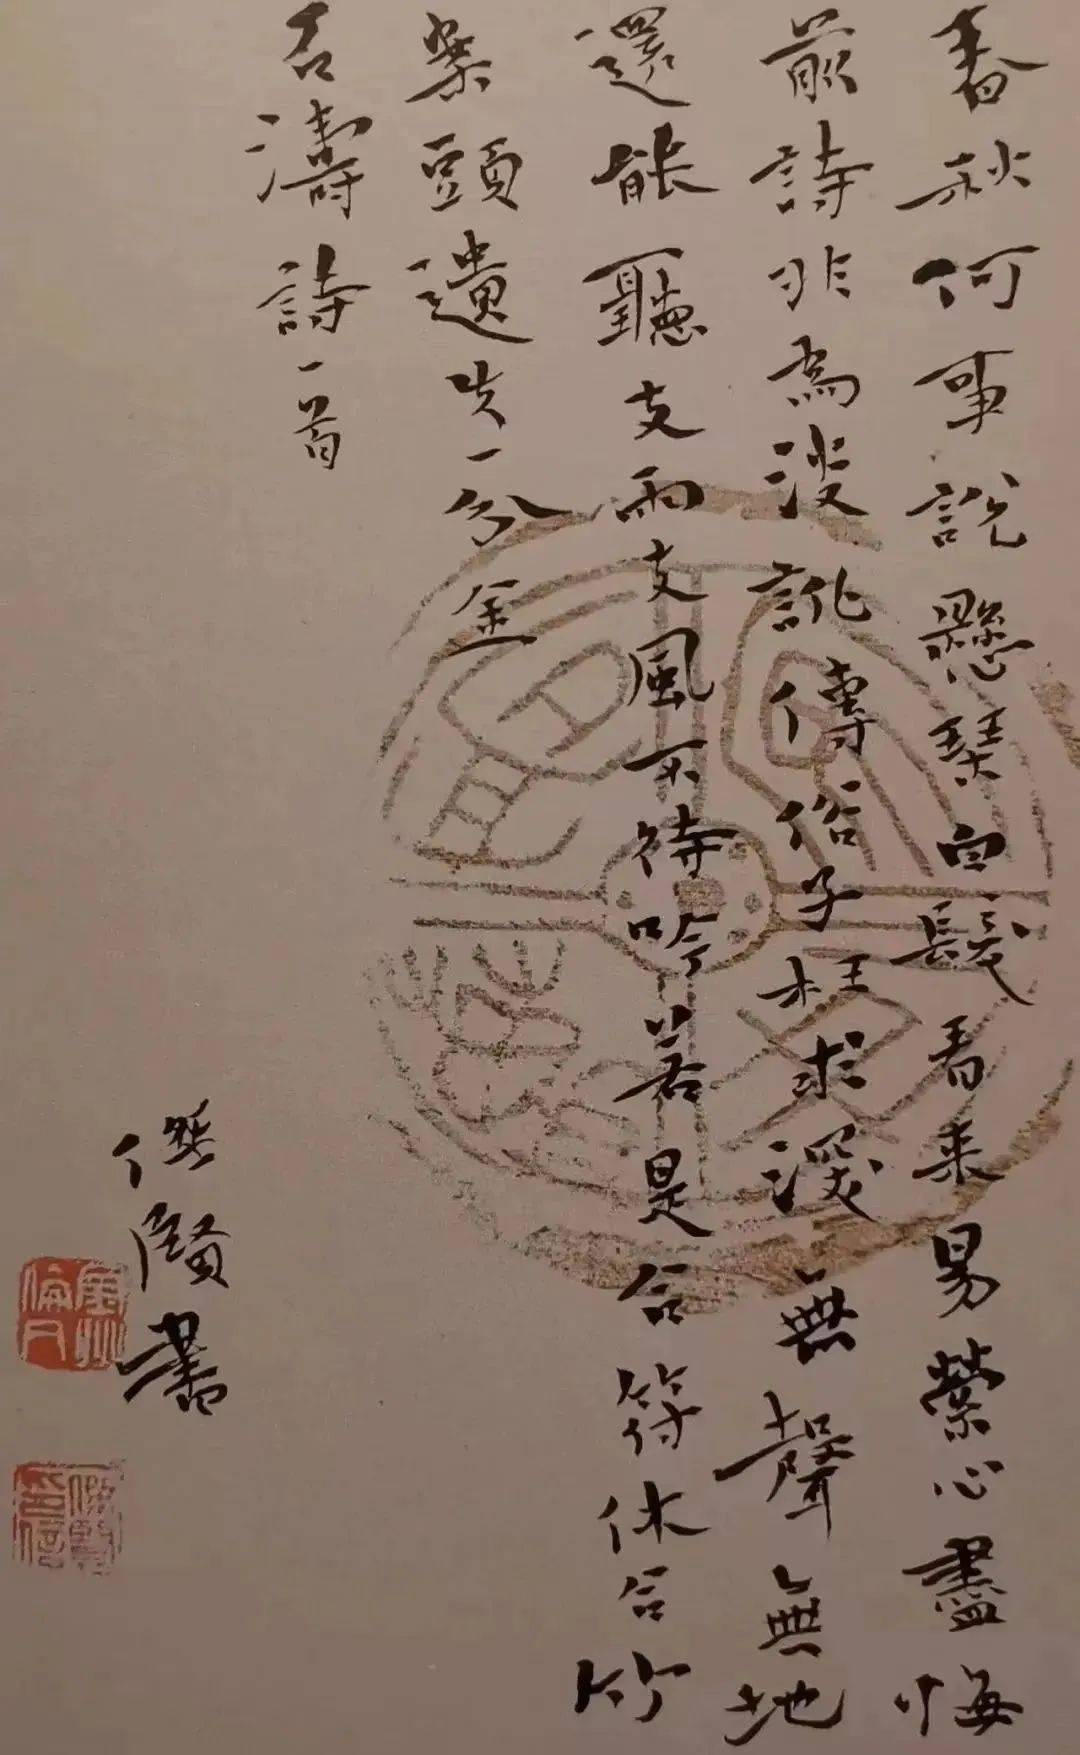 春秋何事說懸琴白髮看來易縈心盡悔
前詩非為淡訛傳俗子枉求深無聲無地
還能聽支雨支風不待吟若是合符休合竹
案頭遺失一分金
石濤詩一首
傑賢書